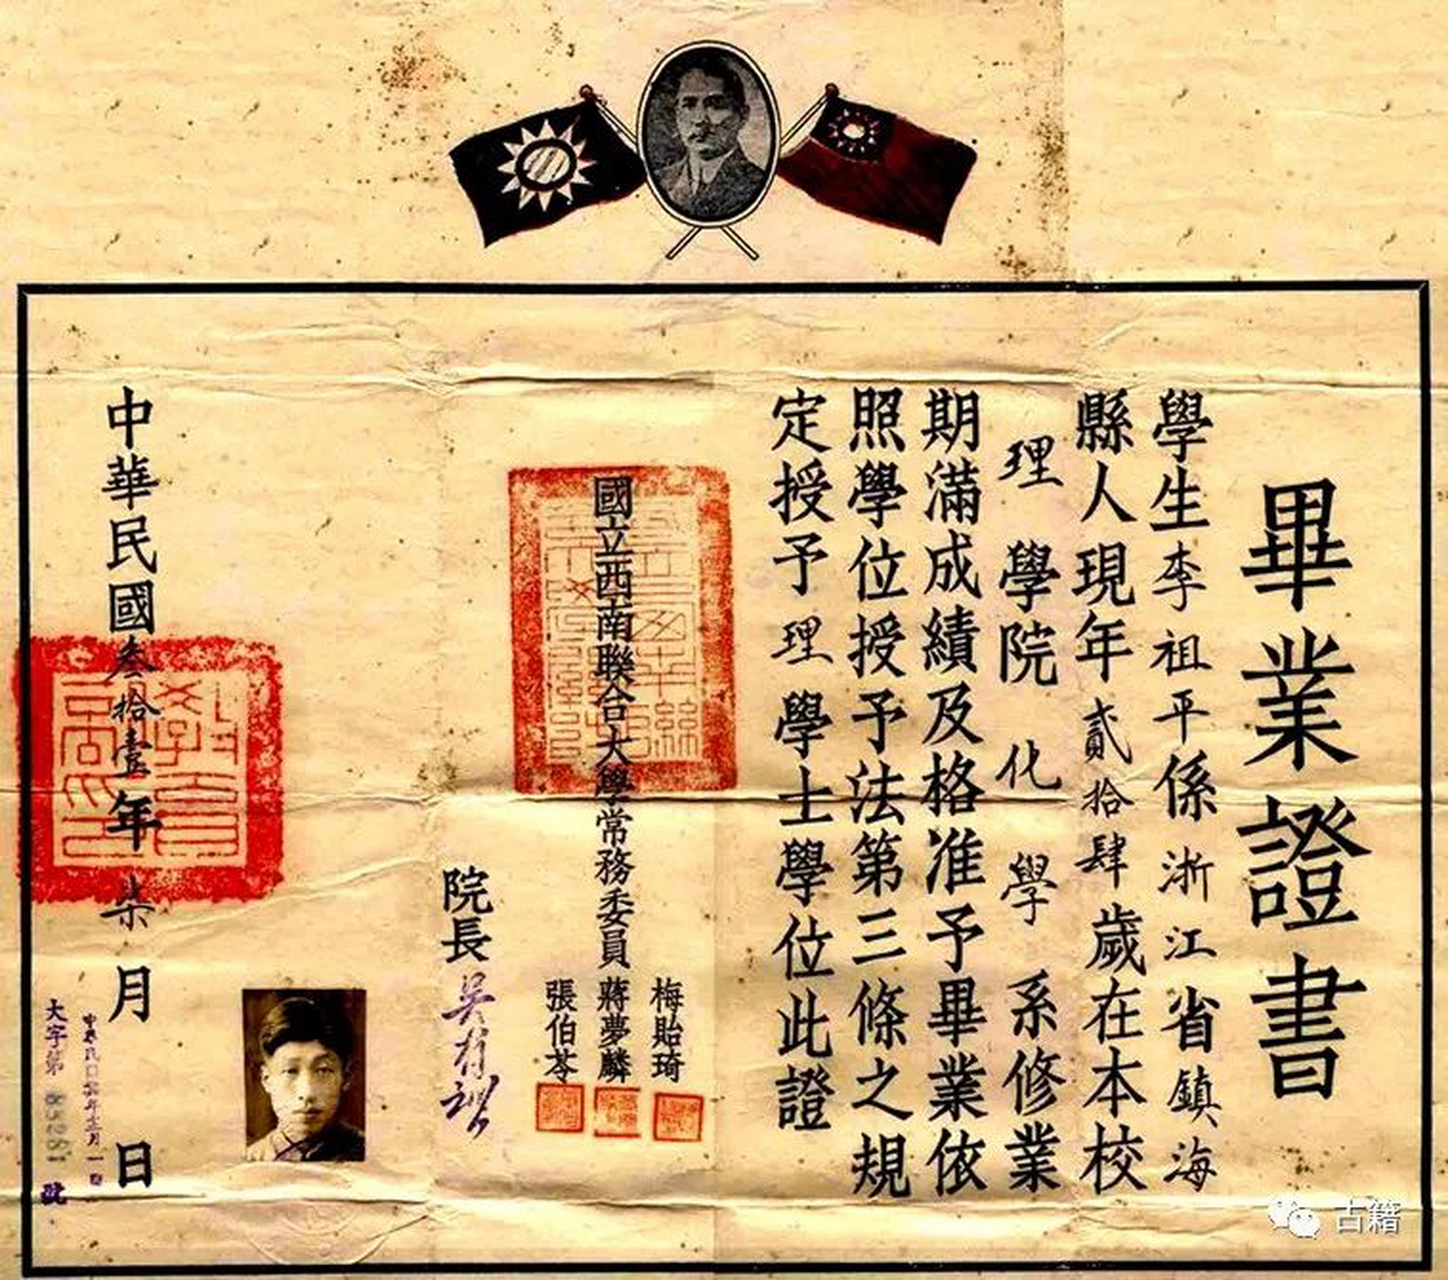 畢業證書
學生李祖平係浙江省鎮海
縣人現年貳拾肆歲在本校
理學院化學系修業
期滿成績及格准予畢業依
照學位授予法第三條之規
定授予理學士學位此證
國立西南聯合大學常務委員
梅貽琦
蔣夢麟
張伯苓
院長
吳有訓
中華民國叁拾壹年柒月日
大字第
號
古籍